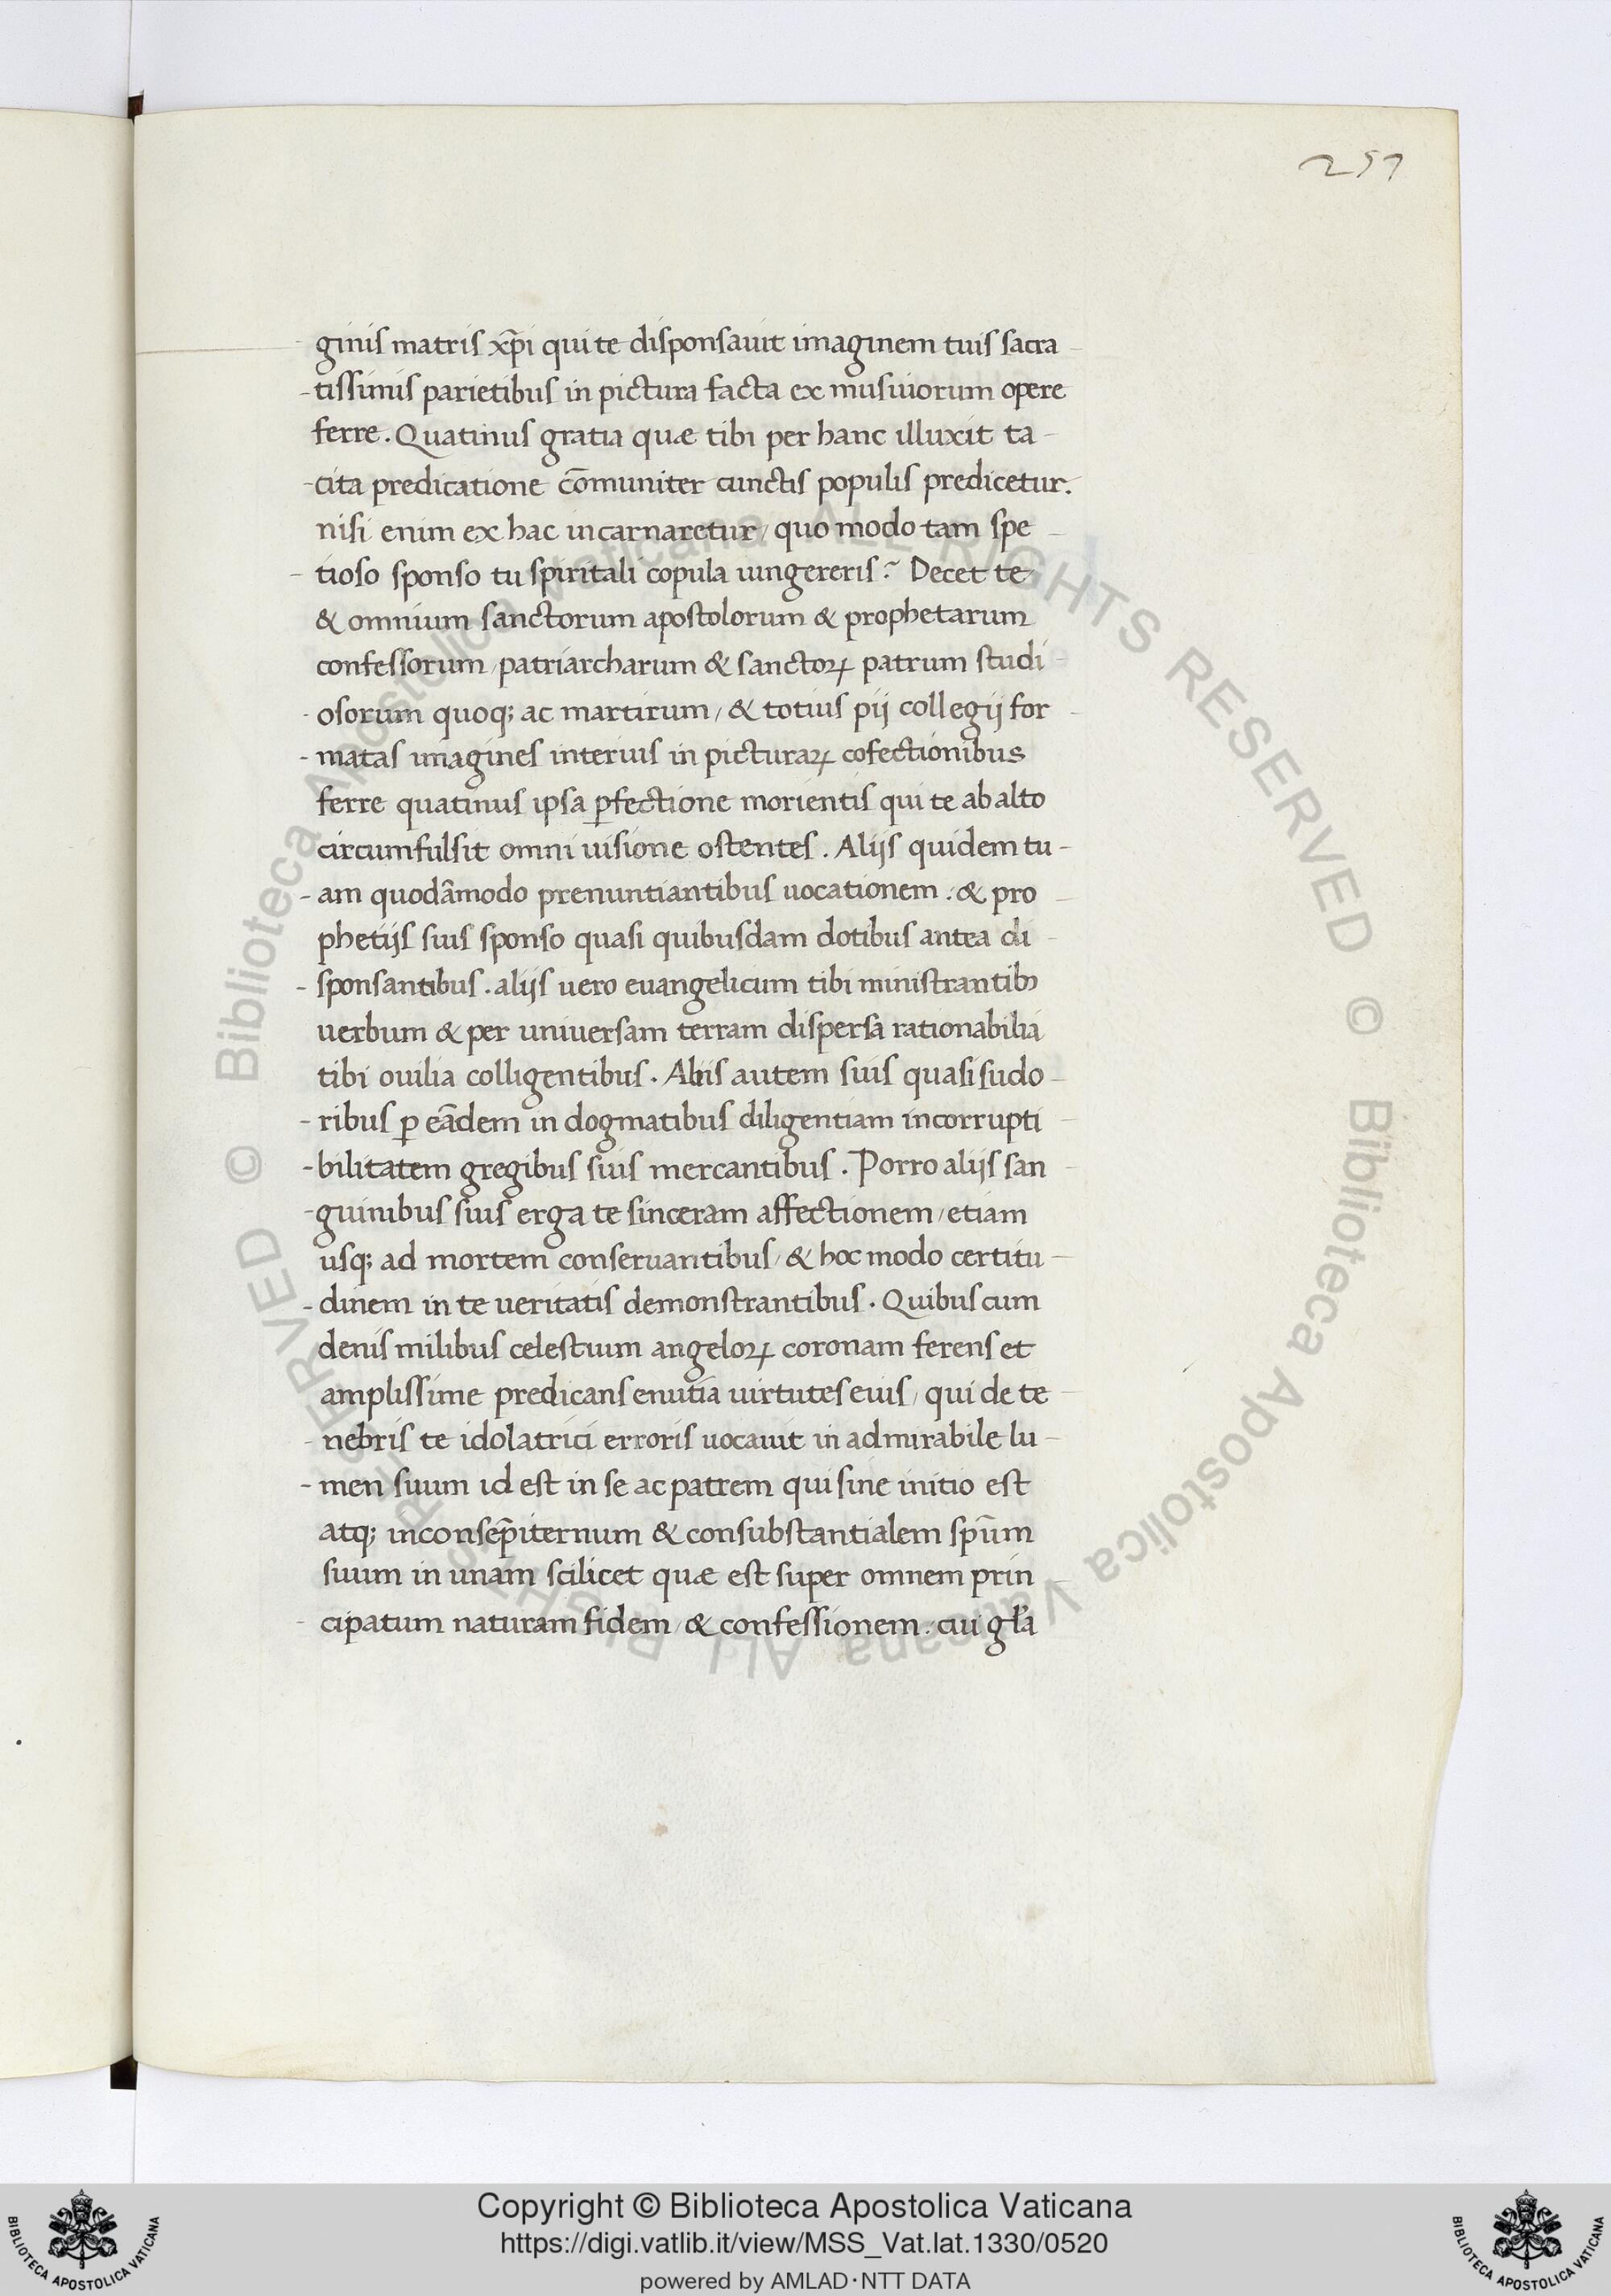 257
ginis matris xp̄i qui te disponsauit imaginem tuis sacra-
-tissimis parietibus in pictura facta ex musiuorum opere
ferre. Quatinus gratia quæ tibi per hanc illuxit ta-
-cita predicatione cōmuniter cunctis populis predicetur.
nisi enim ex hac incarnaretur, quo modo tam spe-
-tioso sponso tu spiritali copula iungereris? Decet te
& omnium sanctorum apostolorum & prophetarum
confessorum, patriarcharum & sanctoꝝ patrum studi-
-osorum quoq; ac martirum, & totius pij collegij for-
-matas imagines interius in picturaꝝ cofectionibus
ferre quatinus ipsa ꝑfectione morientis qui te ab alto
circumfulsit omni uisione ostentes. Alijs quidem tu-
-am quodāmodo prenuntiantibus uocationem. & pro-
phetijs suis sponso quasi quibusdam dotibus antea di-
-sponsantibus. alijs uero euangelicum tibi ministrantibꝰ
uerbum & per uniuersam terram dispersa rationabilia
tibi ouilia colligentibus. Aliis autem suis quasi sudo-
-ribus ꝑ eādem in dogmatibus diligentiam incorrupti-
-bilitatem gregibus suis mercantibus. Porro alijs san-
-guinibus suis erga te sinceram affectionem, etiam
usq; ad mortem conseruantibus, & hoc modo certitu-
-dinem in te ueritatis demonstrantibus. Quibus cum
denis milibus celestium angeloꝝ coronam ferens et
amplissime predicans enutia uirtutes eius, qui de te-
-nebris te idolatrici erroris uocauit in admirabile lu-
-men suum id est in se ac patrem qui sine initio est
atq; inconsep̄iternum & consubstantialem sp̄um
suum in unam scilicet quæ est super omnem prin-
-cipatum naturam fidem, & confessionem. cui gl̄a
© Biblioteca Apostolica Vaticana ALL RIGHTS RESERVED © Biblioteca Apostolica Vaticana ALL RIGHTS RESERVED
Copyright © Biblioteca Apostolica Vaticana
https://digi.vatlib.it/view/MSS_Vat.lat.1330/0520
powered by AMLAD·NTT DATA
BIBLIOTECA APOSTOLICA VATICANA
BIBLIOTECA APOSTOLICA VATICANA